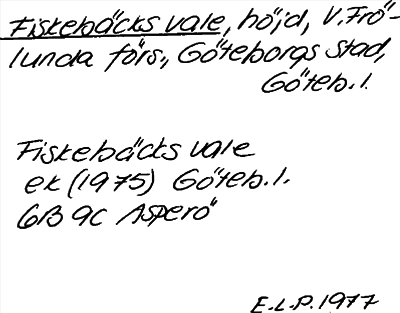 Fiskebäcks vale, höjd, V. Frö-
lunda förs., Göteborgs stad,
Göteb. l.
Fiskebäcks vale
ek (1975) Göteb. l.
6B 9c Asperö
E.L.P. 1977